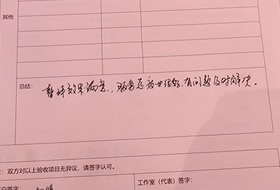 其他
总结:
整体效果满意,服务态度也很好,有问题及时解决。
注:双方对以上验收项目无异议,请签字认可。
签字:
工作室(代表)签字: